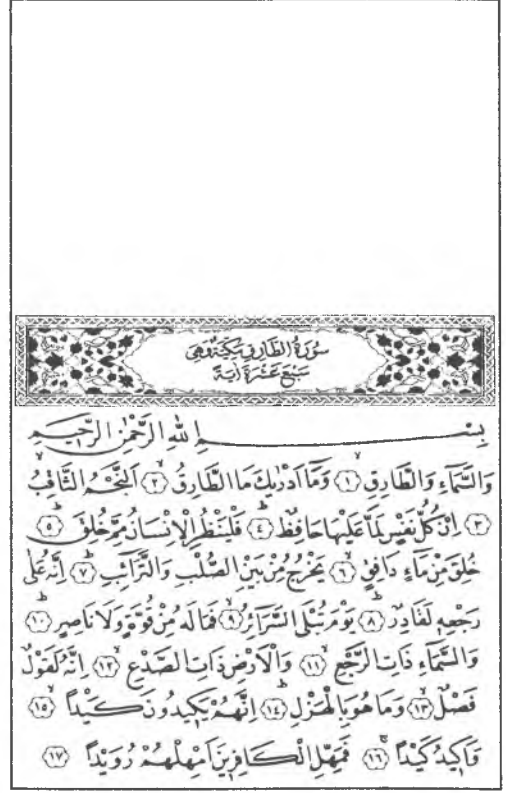 سُورَةُ الطَّارِقِ مَكِّيَّةٌ وَهِيَ
سَبْعَ عَشْرَةَ اٰيَةً
بِسْمِ اللّٰهِ الرَّحْمٰنِ الرَّحِيمِ
وَالسَّمَٓاءِ وَالطَّارِقِۙ ﴿١﴾ وَمَٓا اَدْرٰيكَ مَا الطَّارِقُۙ ﴿٢﴾ اَلنَّجْمُ الثَّاقِبُۙ
﴿٣﴾ اِنْ كُلُّ نَفْسٍ لَمَّا عَلَيْهَا حَافِظٌۜ ﴿٤﴾ فَلْيَنْظُرِ الْاِنْسَانُ مِمَّ خُلِقَۜ ﴿٥﴾
خُلِقَ مِنْ مَٓاءٍ دَافِقٍۙ ﴿٦﴾ يَخْرُجُ مِنْ بَيْنِ الصُّلْبِ وَالتَّرَٓائِبِۜ ﴿٧﴾ اِنَّهُ عَلٰى
رَجْعِهِ لَقَادِرٌۜ ﴿٨﴾ يَوْمَ تُبْلَى السَّرَٓائِرُۙ ﴿٩﴾ فَمَا لَهُ مِنْ قُوَّةٍ وَلَا نَاصِرٍۜ ﴿١٠﴾
وَالسَّمَٓاءِ ذَاتِ الرَّجْعِۙ ﴿١١﴾ وَالْاَرْضِ ذَاتِ الصَّدْعِۙ ﴿١٢﴾ اِنَّهُ لَقَوْلٌ
فَصْلٌۙ ﴿١٣﴾ وَمَا هُوَ بِالْهَزْلِۜ ﴿١٤﴾ اِنَّهُمْ يَكِيدُونَ كَيْدًاۙ ﴿١٥﴾
وَاَكِيدُ كَيْدًاۚ ﴿١٦﴾ فَمَهِّلِ الْكَافِرِينَ اَمْهِلْهُمْ رُوَيْدًا ﴿١٧﴾